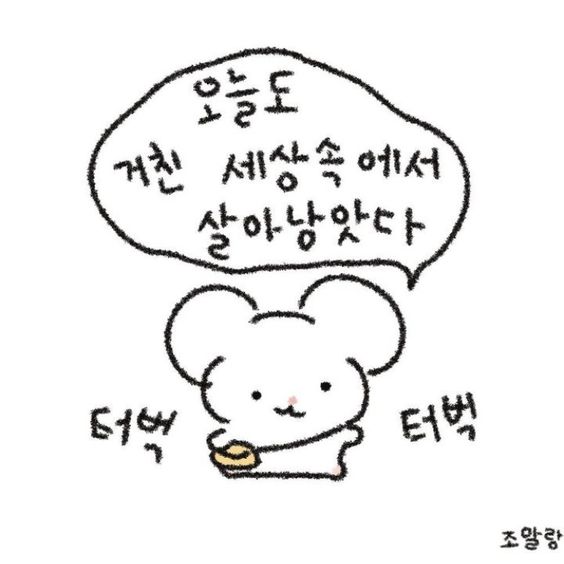 오늘도
거친 세상속에서
살아낭앗다
터벅
터벅
조말랑